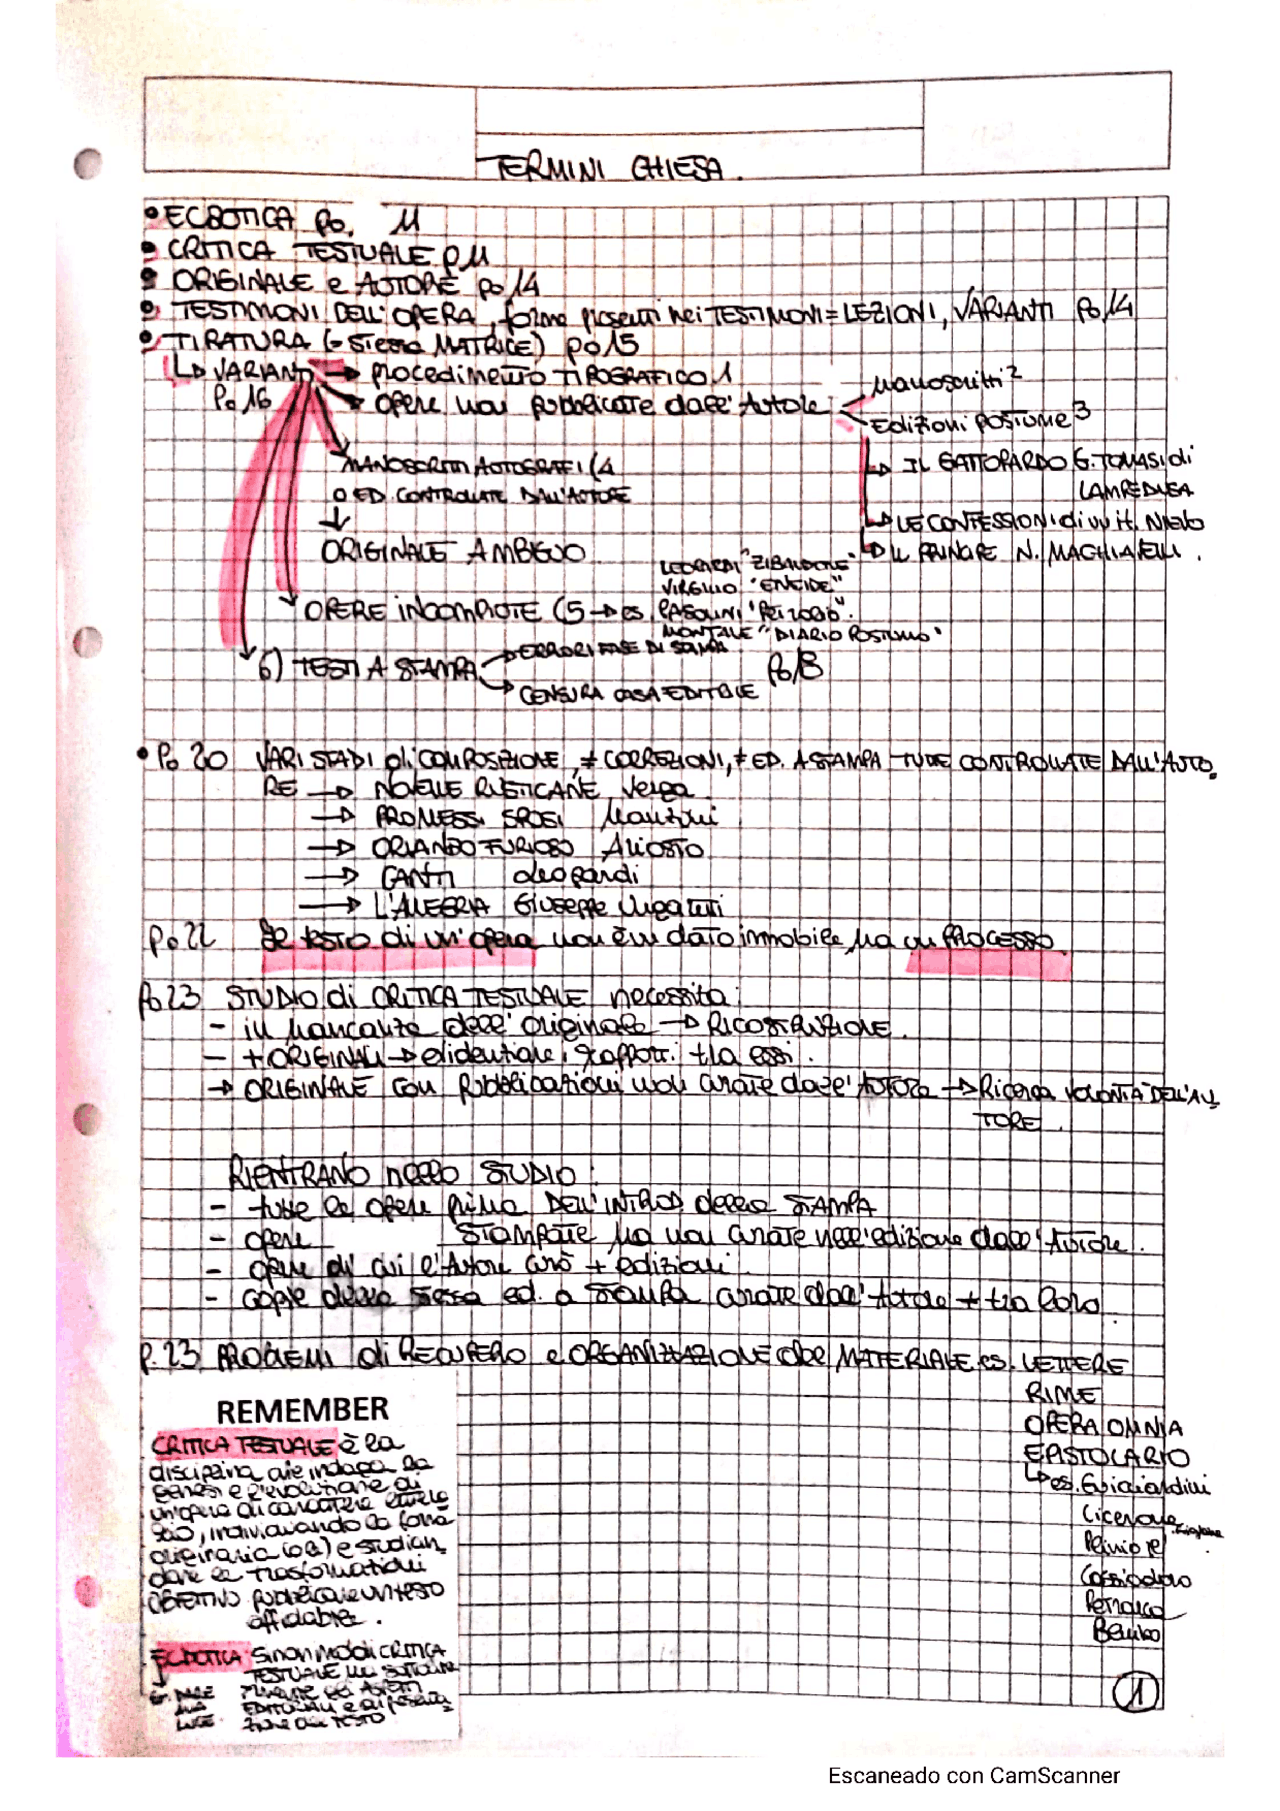 TERMINI CHIESA.
• ECDOTICA pg. 11
• CRITICA TESTUALE p 11
• ORIGINALE e AUTORE pg 14
• TESTIMONI DELL'OPERA, forme presenti nei TESTIMONI = LEZIONI, VARIANTI pg 14
• TIRATURA (= stessa MATRICE) pg 15
↳ VARIANTI → procedimento TIPOGRAFICO 1
Pg 16 → opere non pubblicate dall'Autore
manoscritti 2
Edizioni POSTUME 3
↳ IL GATTOPARDO G. TOMASI di
LAMPEDUSA
↳ LE CONFESSIONI di un it. Nievo
↳ IL PRINCIPE N. MACHIAVELLI.
MANOSCRITTI AUTOGRAFI (4
O ED. CONTROLLATE DALL'AUTORE
↓
ORIGINALE AMBIGUO
OPERE INCOMPLETE (5 → es.
LEOPARDI "ZIBALDONE"
VIRGILIO "ENEIDE"
PASOLINI "Petrolio".
MONTALE "DIARIO POSTUMO"
6) TESTI A STAMPA
→ ERRORI FASE DI STAMPA
→ CENSURA CASA EDITRICE
Pg 18
• Pg 20 VARI STADI di COMPOSIZIONE, ≠ CORREZIONI, ≠ ED. A STAMPA TUTTE CONTROLLATE DALL'AUTO
RE → NOVELLE RUSTICANE Verga
→ PROMESSI SPOSI Manzoni
→ ORLANDO FURIOSO Ariosto
→ CANTI Leopardi
→ L'ALLEGRIA Giuseppe Ungaretti
Pg 22 Il testo di un'opera non è un dato immobile ma un PROCESSO
Pg 23 STUDIO di CRITICA TESTUALE necessita:
- in mancanza dell'originale → RICOSTRUZIONE.
- + ORIGINALI → evidenziare i rapporti tra essi.
→ ORIGINALE con pubblicazioni non curate dall'AUTORE → Ricerca VOLONTÀ DELL'AU
TORE.
RIENTRANO nello STUDIO:
- tutte le opere prima DELL'INTROD della STAMPA
- opere STAMPATE ma non curate nell'edizione dall'Autore.
- opere di cui l'Autore curò + edizioni.
- copie della stessa ed. a STAMPA curate dall'Autore ≠ tra loro
P. 23 PROBLEMI di RECUPERO e ORGANIZZAZIONE del MATERIALE es. LETTERE
RIME
OPERA OMNIA
EPISTOLARIO
↳ es. Guicciardini
Cicerone
Plinio
Cassiodoro
Petrarca
Bembo
REMEMBER
CRITICA TESTUALE è la
disciplina che indaga la
genesi e l'evoluzione di
un'opera di carattere lettera
rio, individuando la forma
originaria (o le) e studian
done le trasformazioni
OBIETTIVO pubblicare un testo
affidabile.
ECDOTICA Sinonimo di CRITICA
TESTUALE ma
ASPETTI
EDITORIALI e di presenta
zione del TESTO
1
Escaneado con CamScanner